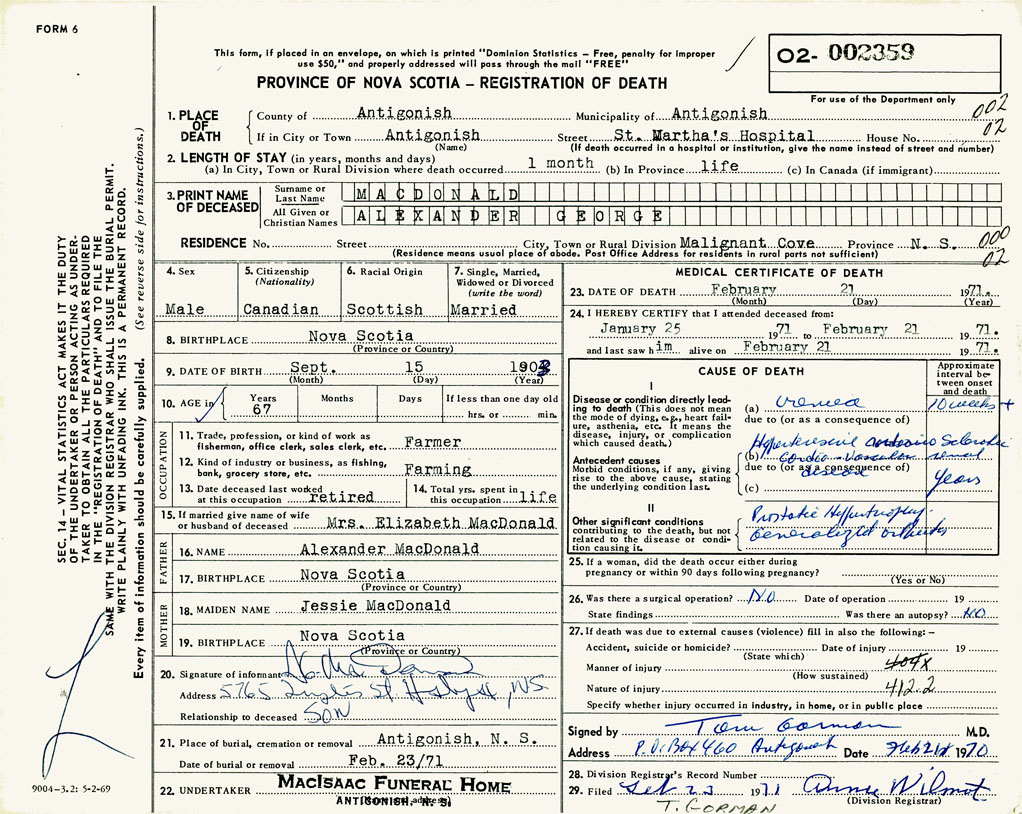 FORM 6
This form, if placed in an envelope, on which is printed "Dominion Statistics – Free, penalty for improper
use $50," and properly addressed will pass through the mail "FREE"
02- 002359
For use of the Department only
PROVINCE OF NOVA SCOTIA – REGISTRATION OF DEATH
1. PLACE OF DEATH
County of Antigonish Municipality of Antigonish 002
02
If in City or Town Antigonish Street St. Martha's Hospital House No.
(Name) (If death occurred in a hospital or institution, give the name instead of street and number)
2. LENGTH OF STAY (in years, months and days)
(a) In City, Town or Rural Division where death occurred 1 month (b) In Province life (c) In Canada (if immigrant)
3. PRINT NAME OF DECEASED
Surname or Last Name MACDONALD
All Given or Christian Names ALEXANDER GEORGE
RESIDENCE No. Street City, Town or Rural Division Malignant Cove Province N. S. 000
02
(Residence means usual place of abode. Post Office Address for residents in rural parts not sufficient)
4. Sex
Male
5. Citizenship
(Nationality)
Canadian
6. Racial Origin
Scottish
7. Single, Married,
Widowed or Divorced
(write the word)
Married
8. BIRTHPLACE Nova Scotia
(Province or Country)
9. DATE OF BIRTH Sept. 15 1903
(Month) (Day) (Year)
10. AGE in Years Months Days If less than one day old
67 hrs. or min.
OCCUPATION
11. Trade, profession, or kind of work as
fisherman, office clerk, sales clerk, etc. Farmer
12. Kind of industry or business, as fishing,
bank, grocery store, etc. Farming
13. Date deceased last worked
at this occupation retired
14. Total yrs. spent in
this occupation life
15. If married give name of wife
or husband of deceased Mrs. Elizabeth MacDonald
FATHER
16. NAME Alexander MacDonald
17. BIRTHPLACE Nova Scotia
(Province or Country)
MOTHER
18. MAIDEN NAME Jessie MacDonald
19. BIRTHPLACE Nova Scotia
(Province or Country)
20. Signature of informant
Address 5765 Inglis St Halifax, NS
Relationship to deceased SON
21. Place of burial, cremation or removal Antigonish, N. S.
Date of burial or removal Feb. 23/71
22. UNDERTAKER MACISAAC FUNERAL HOME
ANTIGONISH, N. S.
MEDICAL CERTIFICATE OF DEATH
23. DATE OF DEATH February 21 1971.
(Month) (Day) (Year)
24. I HEREBY CERTIFY that I attended deceased from:
January 25 1971 to February 21 1971.
and last saw him alive on February 21 1971.
CAUSE OF DEATH
Approximate
interval be-
tween onset
and death
I
Disease or condition directly lead-
ing to death (This does not mean
the mode of dying, e.g., heart fail-
ure, asthenia, etc. It means the
disease, injury, or complication
which caused death.)
(a) Uremia 10 weeks +
due to (or as a consequence of)
Antecedent causes
Morbid conditions, if any, giving
rise to the above cause, stating
the underlying condition last.
Hypertensive Sclerotic
(b) Cardio-Vascular renal
due to (or as a consequence of)
disease Years
(c)
II
Other significant conditions
contributing to the death, but not
related to the disease or condi-
tion causing it.
Prostatic Hypertrophy
Generalized arthritis
25. If a woman, did the death occur either during
pregnancy or within 90 days following pregnancy?
(Yes or No)
26. Was there a surgical operation? NO Date of operation 19
State findings Was there an autopsy? NO
27. If death was due to external causes (violence) fill in also the following:–
Accident, suicide or homicide? Date of injury 19
(State which)
Manner of injury 404X
(How sustained)
Nature of injury 412.2
Specify whether injury occurred in industry, in home, or in public place
Signed by Tom Gorman M.D.
Address P.O. Box 460 Antigonish Date Feb 21st 1970
28. Division Registrar's Record Number
29. Filed Feb 23 1971 Anne Wilmot
(Division Registrar)
T. GORMAN
SEC. 14 – VITAL STATISTICS ACT MAKES IT THE DUTY
OF THE UNDERTAKER OR PERSON ACTING AS UNDER-
TAKER TO OBTAIN ALL THE PARTICULARS REQUIRED
IN THE "REGISTRATION OF DEATH" AND TO FILE THE
SAME WITH THE DIVISION REGISTRAR WHO SHALL ISSUE THE BURIAL PERMIT.
WRITE PLAINLY WITH UNFADING INK. THIS IS A PERMANENT RECORD.
Every item of information should be carefully supplied. (See reverse side for instructions.)
9004-3.2: 5-2-69